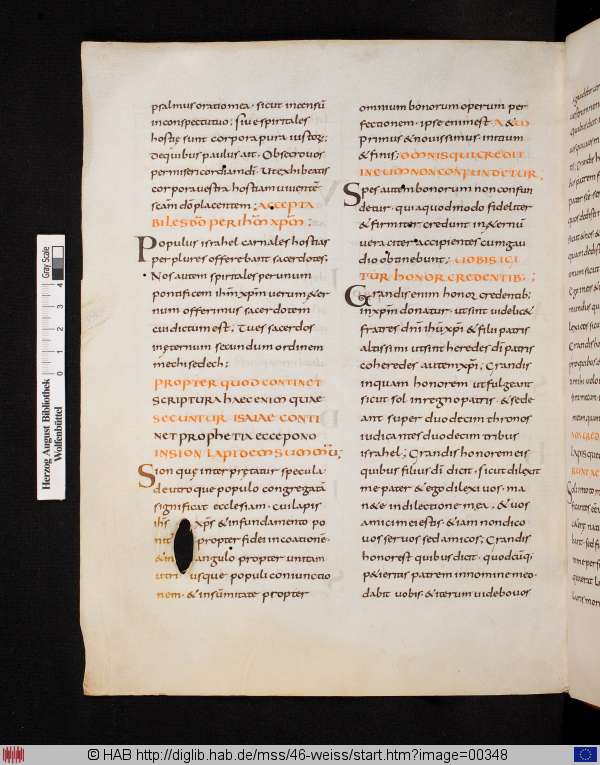 psalmus oratio mea· sicut incensū
inconspectutuo; siue spiritales
hostię sunt corpora pura iustoꝝ;
dequibus paulus ait· Obsecro uos
permisericordiam dī· Ut exhibeatis
corpora uestra hostiam uiuentē
scām dō placentem; ACCEPTA
BILES DŌ PER IHM XPM;
Populus israhel carnales hostias
perplures offerebant sacerdotes·
Nos autem spiritales per unum
pontificem ihm xpm uerum & aer
num offerimus sacerdotem
cui dictum est; Tu es sacerdos
inęternum secundum ordinem
melchisedech;
PROPTER QUOD CONTINET
SCRIPTURA HAEC ENIM QUAE
SECUNTUR ISAIAE CONTI
NET PROPHETIA ECCE PONO
IN SION LAPIDEM SUMMUM;
Sion quę interpretatur specula·
deutroque populo congregatā
significat ecclesiam· Cui lapis
ihs xps & infundamento po
propter fidei incoatione·
angulo propter unitam
usque populi coniunctio
nem· & insūmitate propter
omnium bonorum operum per
fectionem· ipse enim est Α & ω
primus & nouissimus· initium
& finis; OMNIS QUI CREDIT
IN EUM NON CONFUNDETUR;
Spes autem bonorum non confun
detur· quia quodmodo fideliter
& firmiter credunt in & ernū
uera citer accipientes cum gau
dio obtinebunt; UOBIS IGI
TUR HONOR CREDENTIB·;
Grandis enim honor credentib;
in xpm donatur· ut sint uidelic&
fratres dnī ihū xpi & filii patris
altissimi ut sint heredes dī patris
coheredes autem xpī; Grandis
inquam honor em ut fulgeant
sicut sol in regno patris· & sede
ant super duodecim thronos
iudicantes duodecim tribus
israhel; Grandis honor em eis
quibus filius dī dicit· sicut dilexit
me pater & ego dilexi uos· ma
n& e indilectione mea· & uos
amici mei estis· & iam non dico
uos seruos sed amicos; Grandis
honor est quibus dicit· quodcūq;
p&ieritis patrem in nomine meo·
dabit uobis· & iterum uidebo uos
Herzog August Bibliothek
Wolfenbüttel
0 1 2 3 4
Gray Scale
© HAB http://diglib.hab.de/mss/46-weiss/start.htm?image=00348